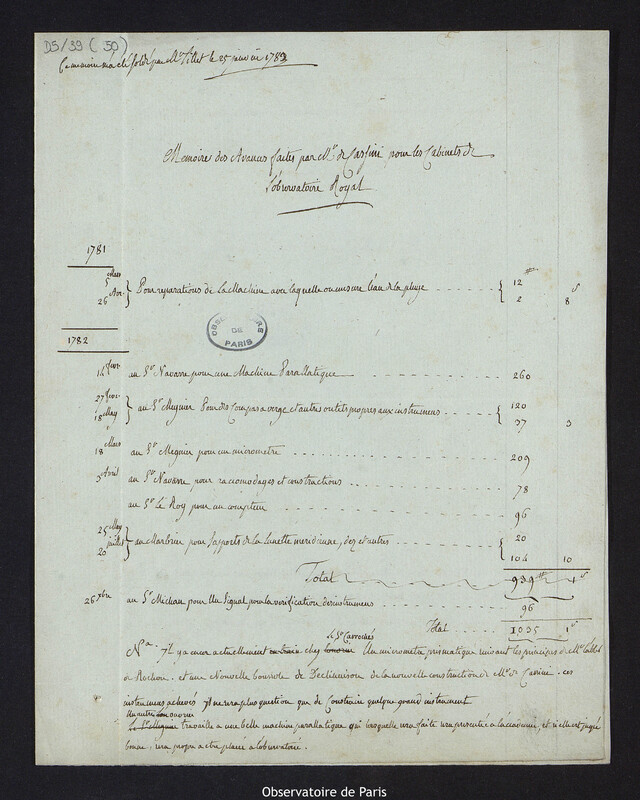 D5/39 (50)
Ce memoire m'a été soldé par Mr Tillet le 25 janvier 1783
Memoire des Avances faites par Mr. de Cassini pour les Cabinets de
l'observatoire Royal
1781
5 Mars
26 Avr. } Pour reparations de la Machine avec laquelle on mesure l'eau de la pluye - - - { 12 tt
2 8 s
OBSERVATOIRE DE PARIS
1782
14 fevr. au Sr Navarre pour une Machine Parallatique - - - - 260
27 fevr.
18 May } au Sr Megnier Pour des Compas a verge et autres outils propres aux instrumens - - - - { 120
37 3
18 Mars au Sr Megnier pour un micrometre - - - - 209
3 Avril au Sr Navarre pour racomodages et constructions - - - - 78
au Sr Le Roy pour un compteur - - - - 96
25 May
20 juillet } au Marbrier pour supports de la lunette meridienne, dez et autres - - - - { 20
104 10
Total 939 tt 1 s
26 Xbre au Sr Michau pour un signal pour la verification des instrumens - - - - 96
Total - - - - 1035 1 s
le Sr Carrochés
Na. Il y a encor actuellement chez Un micrometre prismatique suivant les principes de Mr l'abbé
de Rochon. et une Nouvelle boussole de Declinaison de la nouvelle construction de Mr. de Cassini. ces
instrumens achevés Il ne sera plus question que de Construire quelque grand instrument
Un autre
le Sr Megnier travaille a une belle machine parallatique qui lorsquelle sera faite sera presentée a lacademie, et si elle est jugée
bonne. sera propre a etre placée a lobservatoire.
Observatoire de Paris